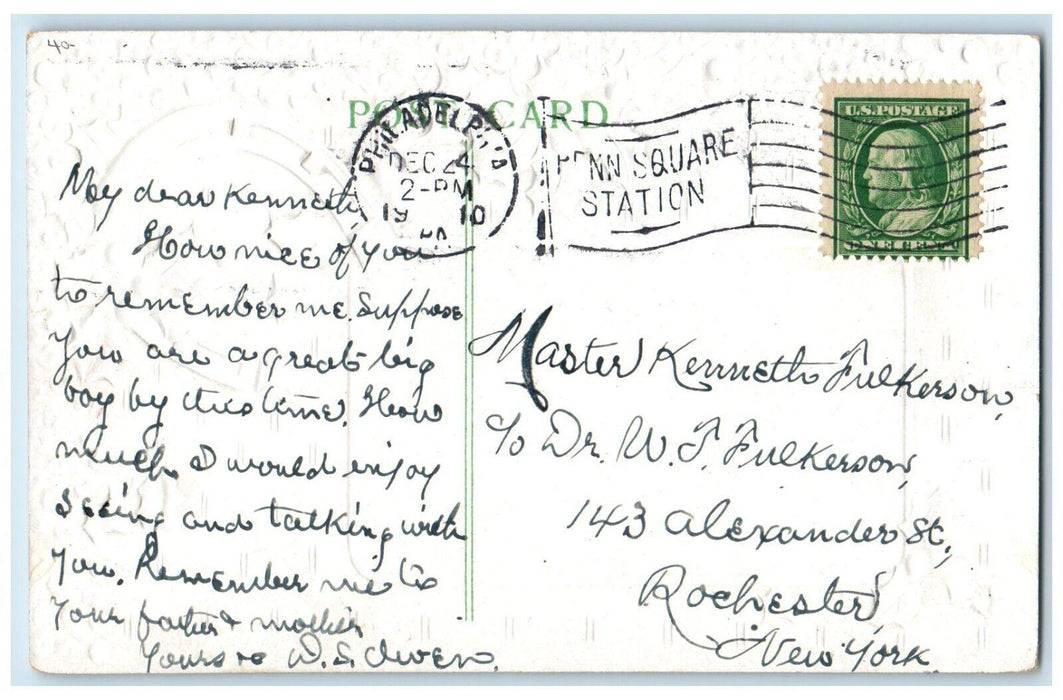 40-
POST CARD
PHILADELPHIA
DEC 24
2-PM
19 10
PA
PENN SQUARE
STATION
U.S. POSTAGE
ONE CENT
My dear Kenneth,
How nice of you
to remember me. Suppose
you are a great big
boy by this time. How
much I would enjoy
seeing and talking with
you. Remember me to
your father & mother
Yours W. S. Owen.
Master Kenneth Fulkerson,
c/o Dr. W. F. Fulkerson,
143 Alexander St.,
Rochester,
New York.